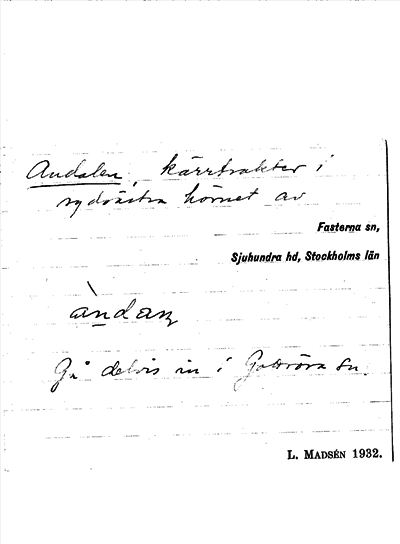 Andalen, kärrtrakter i
sydöstra hörnet av
Fasterna sn,
Sjuhundra hd, Stockholms län
àndaɳ
Gå delvis in i Gottröra sn.
L. MADSÉN 1932.